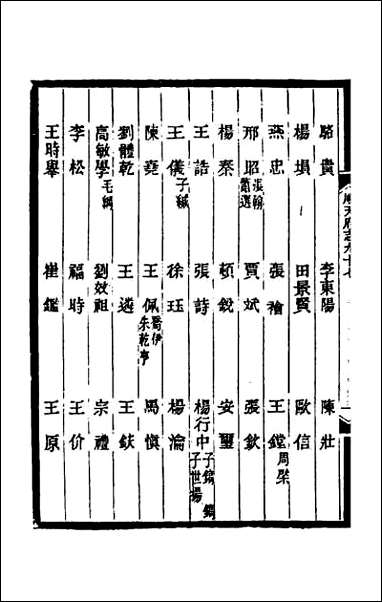 駱貴　李東陽　陳壯
楊塤　田景賢　歐信
燕忠　張禬　王鏜周桀
邢昭張翰蕭選　賈斌　張欽
楊秦　頓銳　安璽
王誥　張詩　楊行中子鎬鎢子世揚
王儀子緘　徐珏　楊瀹
陳堯　王佩喬伊朱乾亨　馬愼
劉體乾　王遴　王鈇
高敏學毛綱　劉效祖　宗禮
李松　福時　王价
王時舉　崔鑑　王原